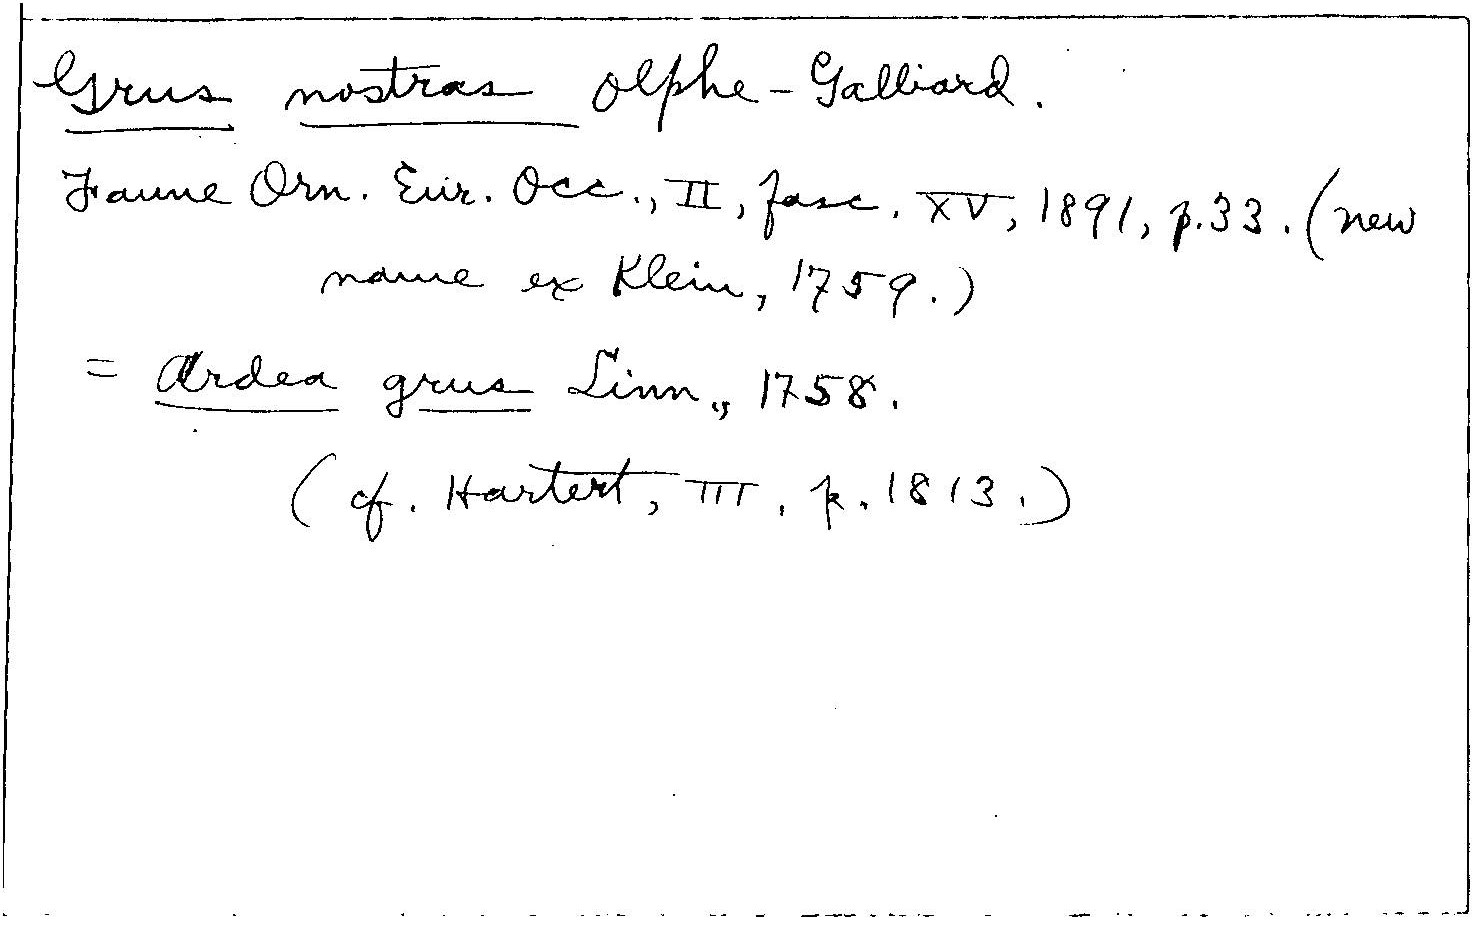 Grus nostras Olphe-Galliard.
Faune Orn. Eur. Occ., II, fasc. XV, 1891, p.33. (new
name ex Klein, 1759.)
= Ardea grus Linn., 1758.
(cf. Hartert, III, p. 1813.)